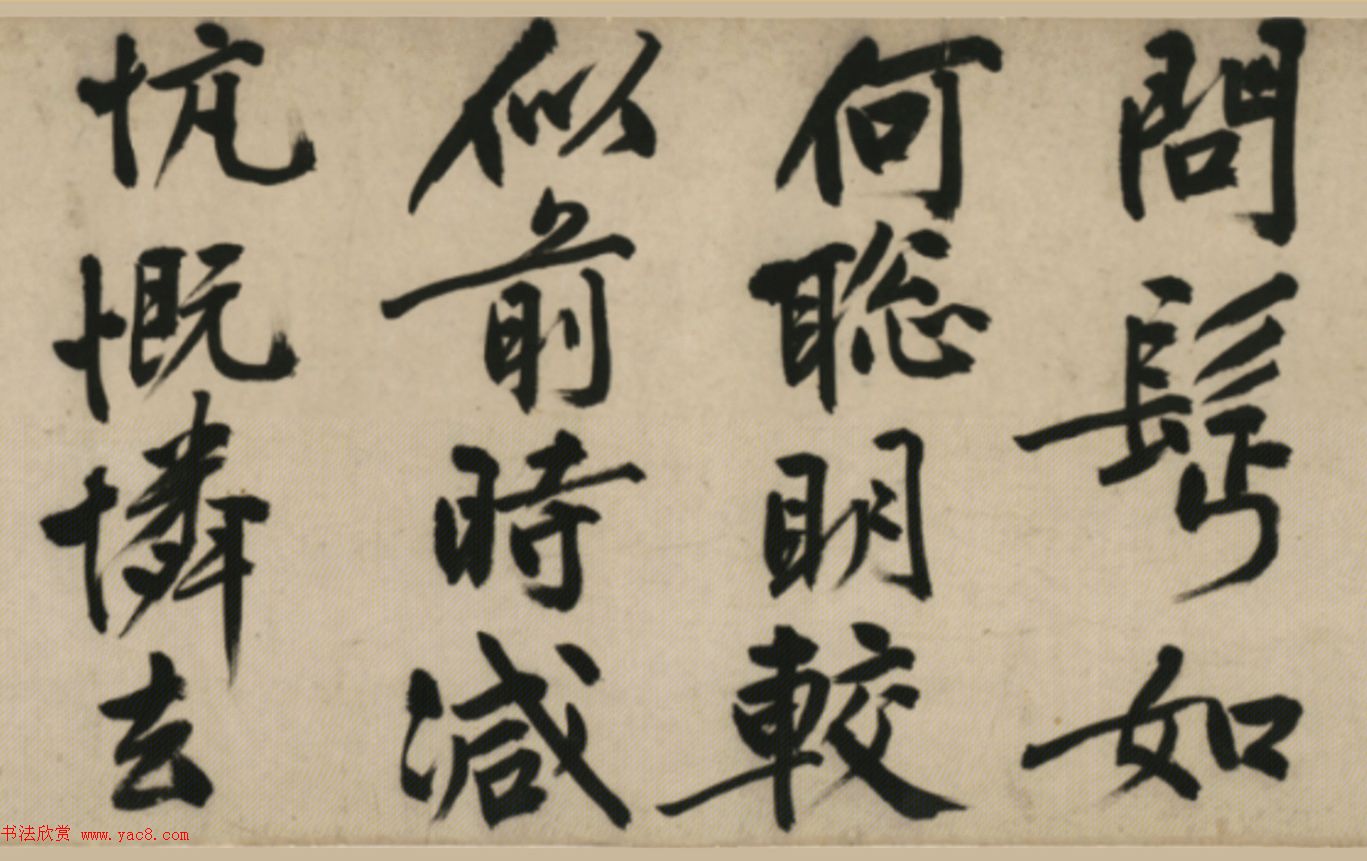 問髩如
何聡明較
似前時減
忼慨憐去
书法欣赏 www.yac8.com